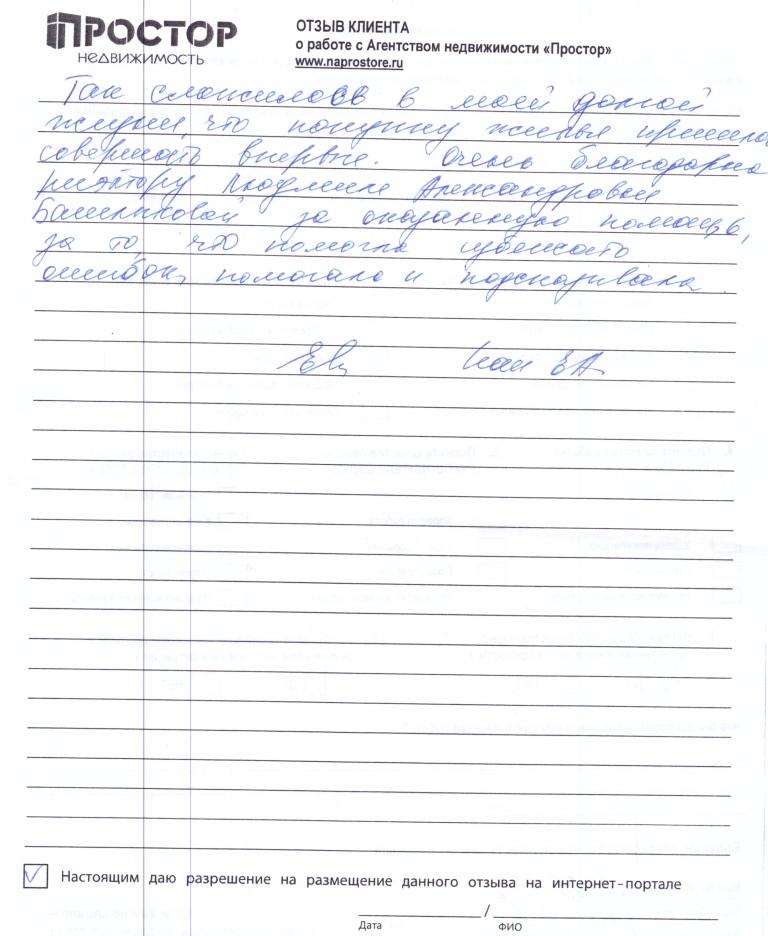 ПРОСТОР
НЕДВИЖИМОСТЬ
ОТЗЫВ КЛИЕНТА
о работе с Агентством недвижимости «Простор»
www.naprostore.ru
Так сложилось в моей долгой
жизни, что покупку жилья пришлось
совершать впервые. Очень благодарна
риэлтору Людмиле Александровне
за оказанную помощь,
за то, что помогла избежать
ошибок, помогала и подсказывала.
Настоящим даю разрешение на размещение данного отзыва на интернет-портале
/
Дата ФИО